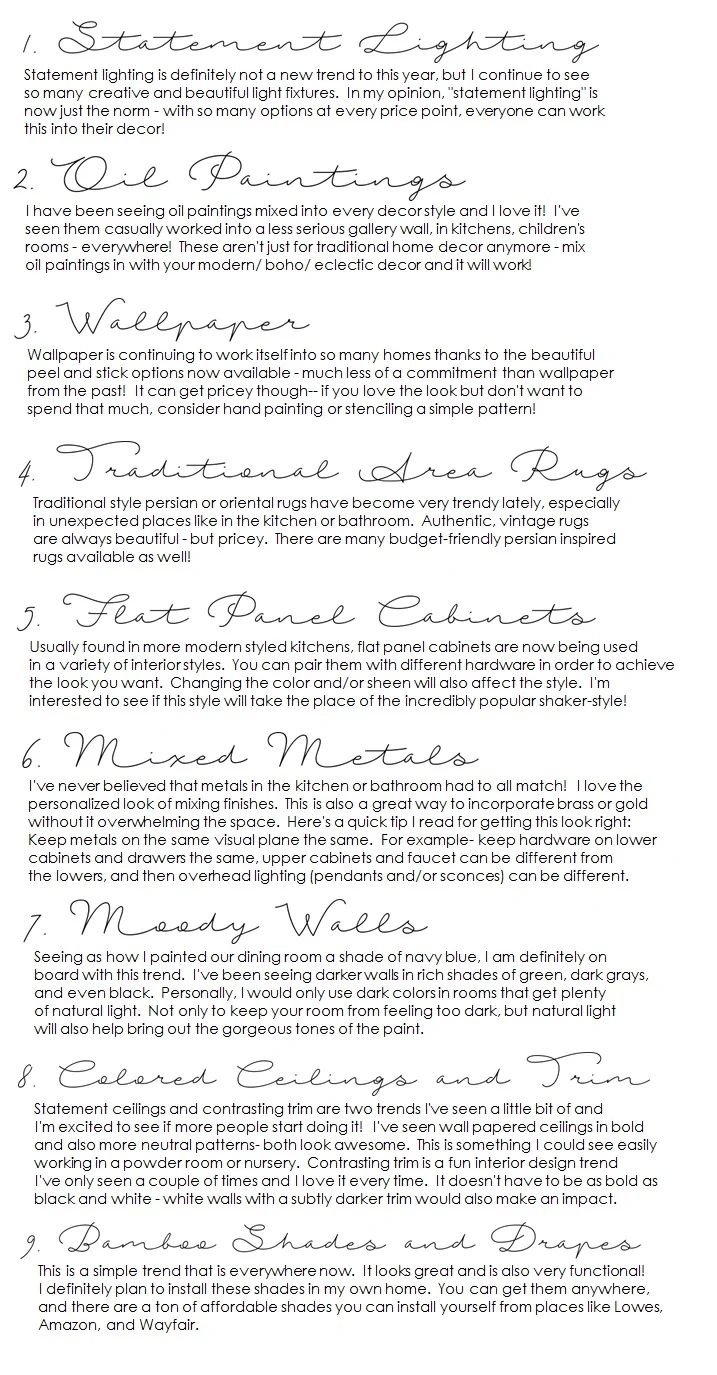 1. Statement Lighting
Statement lighting is definitely not a new trend to this year, but I continue to see
so many creative and beautiful light fixtures. In my opinion, "statement lighting" is
now just the norm - with so many options at every price point, everyone can work
this into their decor!
2. Oil Paintings
I have been seeing oil paintings mixed into every decor style and I love it! I've
seen them casually worked into a less serious gallery wall, in kitchens, children's
rooms - everywhere! These aren't just for traditional home decor anymore - mix
oil paintings in with your modern/ boho/ eclectic decor and it will work!
3. Wallpaper
Wallpaper is continuing to work itself into so many homes thanks to the beautiful
peel and stick options now available - much less of a commitment than wallpaper
from the past! It can get pricey though-- if you love the look but don't want to
spend that much, consider hand painting or stenciling a simple pattern!
4. Traditional Area Rugs
Traditional style persian or oriental rugs have become very trendy lately, especially
in unexpected places like in the kitchen or bathroom. Authentic, vintage rugs
are always beautiful - but pricey. There are many budget-friendly persian inspired
rugs available as well!
5. Flat Panel Cabinets
Usually found in more modern styled kitchens, flat panel cabinets are now being used
in a variety of interior styles. You can pair them with different hardware in order to achieve
the look you want. Changing the color and/or sheen will also affect the style. I'm
interested to see if this style will take the place of the incredibly popular shaker-style!
6. Mixed Metals
I've never believed that metals in the kitchen or bathroom had to all match! I love the
personalized look of mixing finishes. This is also a great way to incorporate brass or gold
without it overwhelming the space. Here's a quick tip I read for getting this look right:
Keep metals on the same visual plane the same. For example- keep hardware on lower
cabinets and drawers the same, upper cabinets and faucet can be different from
the lowers, and then overhead lighting (pendants and/or sconces) can be different.
7. Moody Walls
Seeing as how I painted our dining room a shade of navy blue, I am definitely on
board with this trend. I've been seeing darker walls in rich shades of green, dark grays,
and even black. Personally, I would only use dark colors in rooms that get plenty
of natural light. Not only to keep your room from feeling too dark, but natural light
will also help bring out the gorgeous tones of the paint.
8. Colored Ceilings and Trim
Statement ceilings and contrasting trim are two trends I've seen a little bit of and
I'm excited to see if more people start doing it! I've seen wall papered ceilings in bold
and also more neutral patterns- both look awesome. This is something I could see easily
working in a powder room or nursery. Contrasting trim is a fun interior design trend
I've only seen a couple of times and I love it every time. It doesn't have to be as bold as
black and white - white walls with a subtly darker trim would also make an impact.
9. Bamboo Shades and Drapes
This is a simple trend that is everywhere now. It looks great and is also very functional!
I definitely plan to install these shades in my own home. You can get them anywhere,
and there are a ton of affordable shades you can install yourself from places like Lowes,
Amazon, and Wayfair.